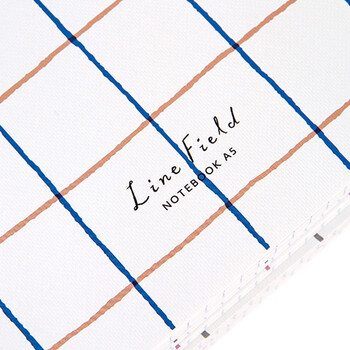 Line Field
NOTEBOOK A5